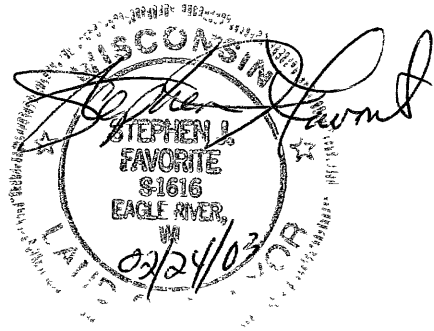 WISCONSIN
Stephen Favorite
STEPHEN J.
FAVORITE
S-1616
EAGLE RIVER,
WI
02/24/03
LAND SURVEYOR